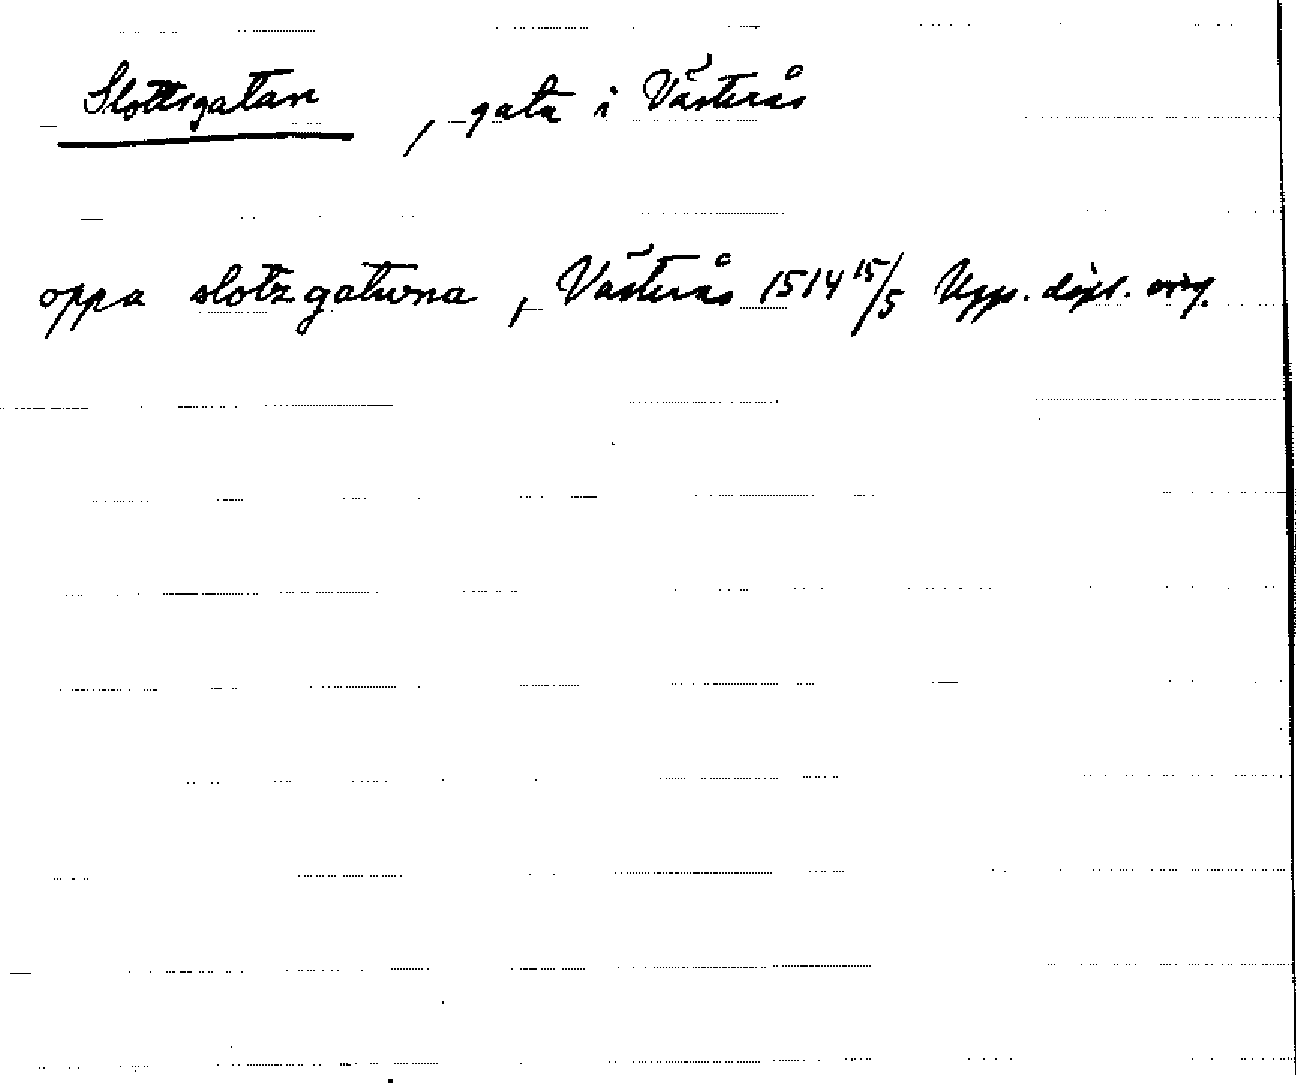 Slottsgatan, gata i Västerås
oppa slotzgatwna, Västerås 1514 15/5 Upps. dipl. orig.